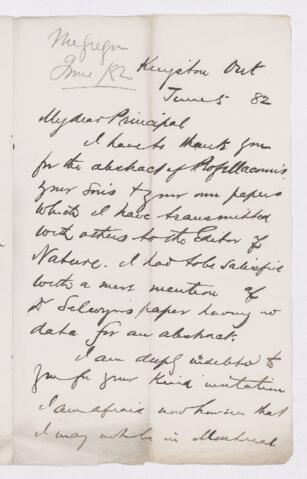 McGregor
June /82
Kingston Ont
June 5 82
My dear Principal
I have to thank you
for the abstract of Prof Macoun's
your Son's & your own papers
which I have transmitted
with others to the Editor of
Nature. I had to be satisfied
with a mere mention of
Dr Selwyn's paper having no
data for an abstract.
I am deeply indebted to
you for your kind invitation
I am afraid now however that
I may not be in Montreal